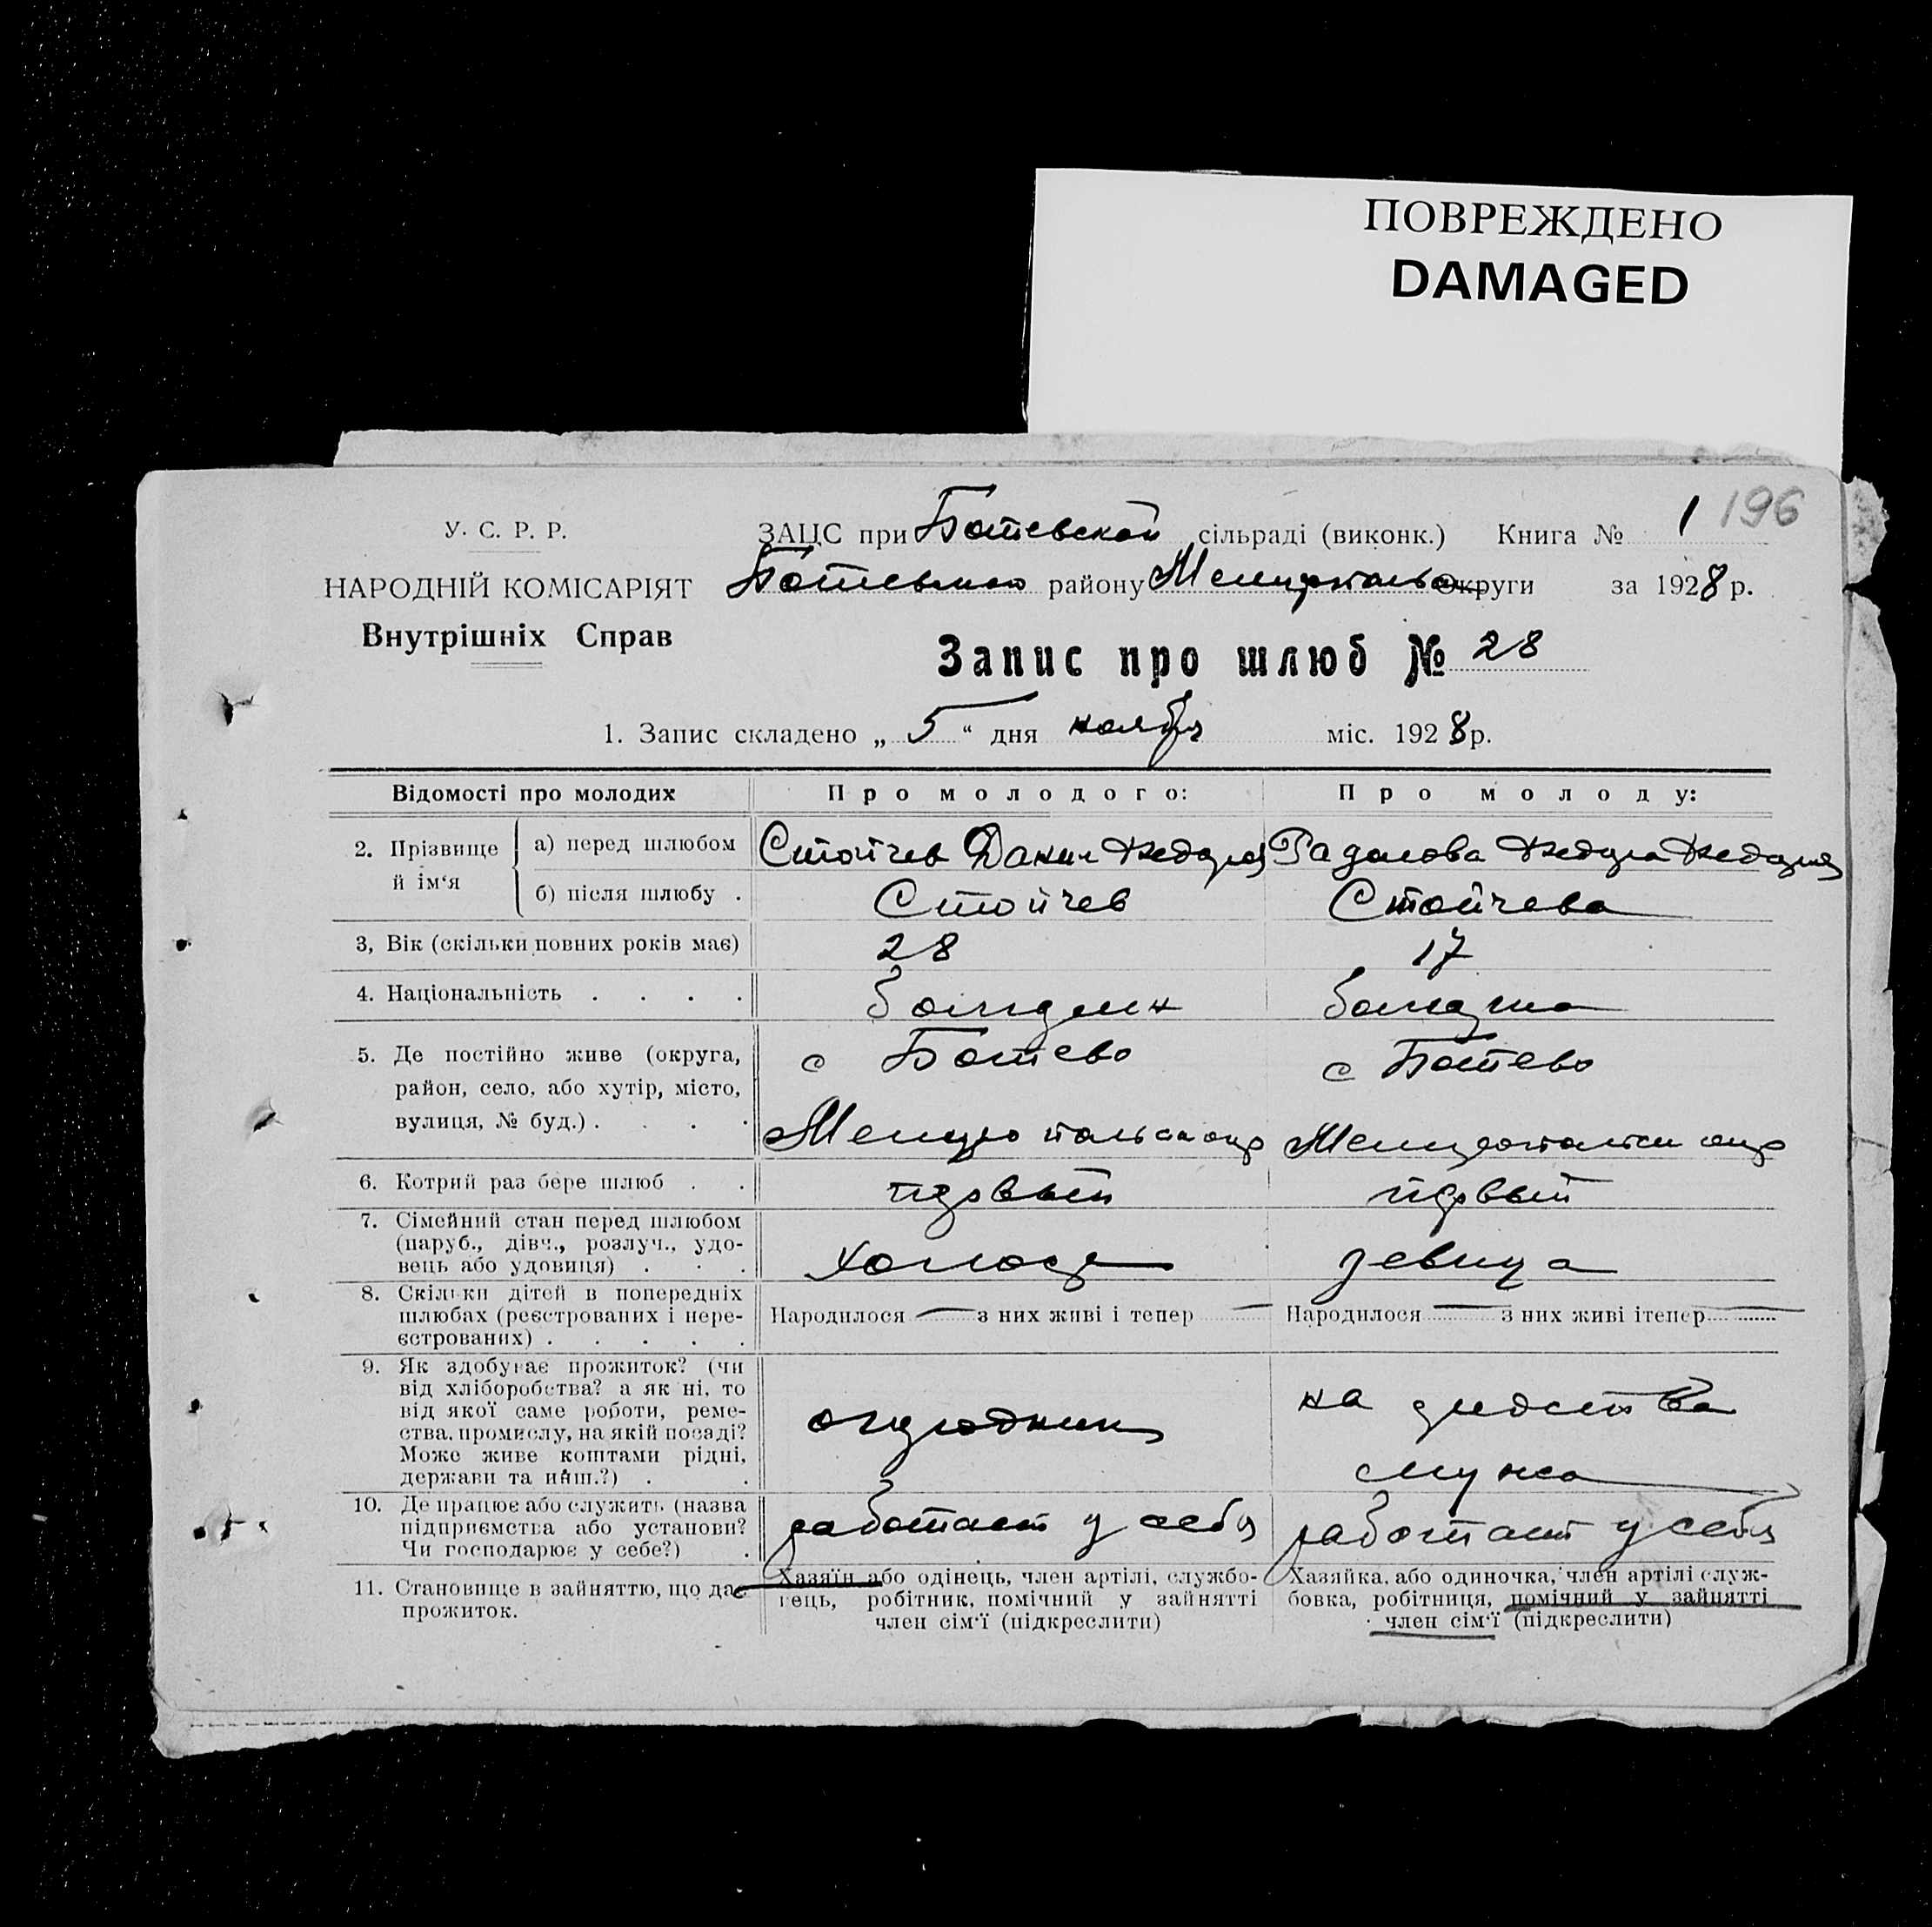 ПОВРЕЖДЕНО
DAMAGED
196
У. С. Р. Р.
НАРОДНІЙ КОМІСАРІЯТ
Внутрішніх Справ
ЗАЦС при Ботевской сільраді (виконк.) Книга № 1
району округи за 1928 р.
Запис про шлюб № 28
1. Запис складено „ 5 “ дня ноября міс. 1928 р.
Відомості про молодих
Про молодого:
Про молоду:
2. Прізвище й ім‘я
а) перед шлюбом
Стойчев Данил
б) після шлюбу .
Стойчев
Стойчева
3, Вік (скільки повних років має)
28
17
4. Національність . . . .
5. Де постійно живе (округа, район, село, або хутір, місто, вулиця, № буд.) . . . .
с Ботево
с Ботево
6. Котрий раз бере шлюб . .
первый
первый
7. Сімейний стан перед шлюбом (паруб., дівч., розлуч., удовець або удовиця) . . .
холост
девица
8. Скільки дітей в попередніх шлюбах (реєстрованих і нереєстрованих) . . . . .
Народилося — з них живі і тепер —
Народилося — з них живі ітепер —
9. Як здобуває прожиток? (чи від хліборобства? а як ні, то від якої саме роботи, ремества, промислу, на якій посаді? Може живе коштами рідні, держави та инш.?) . .
на средства
мужа
10. Де працює або служить (назва підприємства або установи? Чи господарює у себе?) .
работает у себя
работает у себя
11. Становище в зайняттю, що дає прожиток.
Хазяїн або одінець, член артілі, службовець, робітник, помічний у зайнятті член сім‘ї (підкреслити)
Хазяйка, або одиночка, член артілі службовка, робітниця, помічний у зайнятті член сім‘ї (підкреслити)